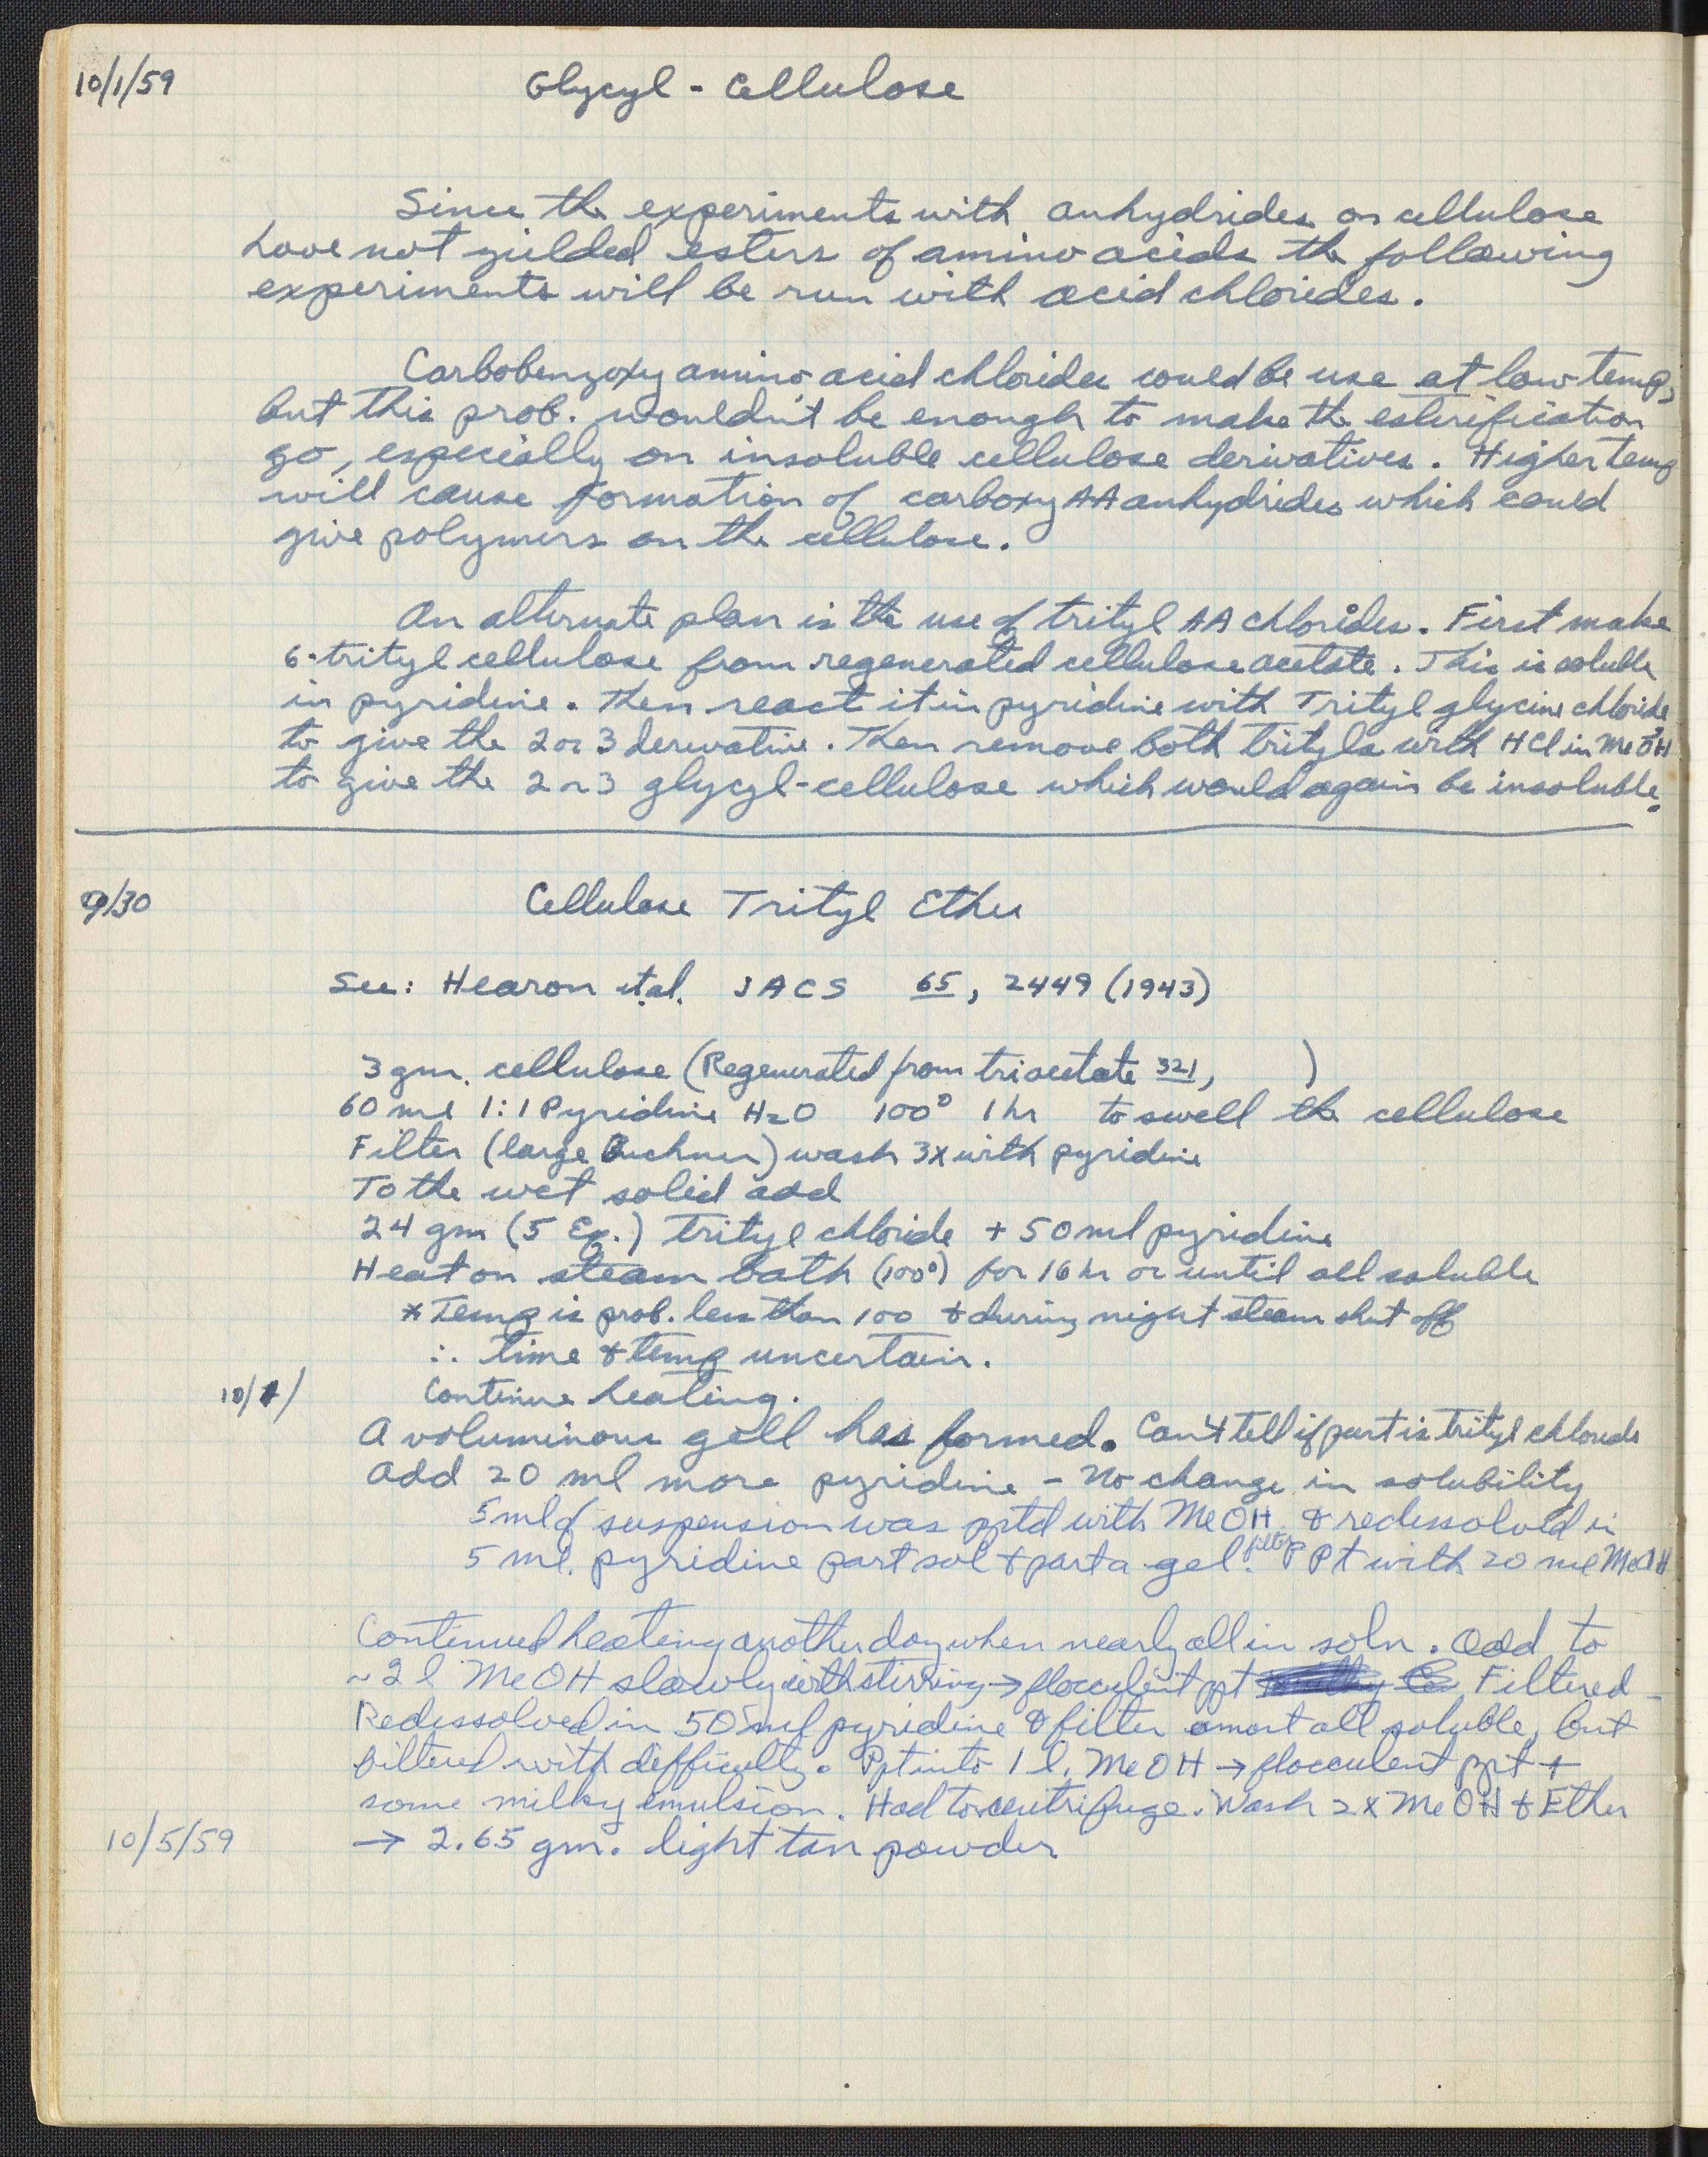 10/1/59 Glycyl - Cellulose
Since the experiments with anhydrides on cellulose
have not yielded esters of amino acids the following
experiments will be run with acid chlorides.
Carbobenzoxy amino acid chlorides could be use at low temp,
but this prob. wouldn't be enough to make the esterification
go, especially on insoluble cellulose derivatives. Higher temp
will cause formation of carboxy AA anhydrides which could
give polymers on the cellulose.
An alternate plan is the use of trityl AA chlorides. First make
6-trityl cellulose from regenerated cellulose acetate. This is soluble
in pyridine. Then react it in pyridine with Trityl glycine chloride
to give the 2 or 3 derivative. Then remove both trityls with HCl in MeOH
to give the 2 or 3 glycyl-cellulose which would again be insoluble.
9/30 Cellulose Trityl Ether
See: Hearon et al. JACS 65, 2449 (1943)
3 gm. cellulose (Regenerated from triacetate 321, )
60 ml 1:1 Pyridine H2O 100° 1 hr to swell the cellulose
Filter (large Buchner) wash 3x with pyridine
To the wet solid add
24 gm (5 Eq.) trityl chloride + 50 ml pyridine
Heat on steam bath (100°) for 16 hr or until all soluble
* Temp is prob. less than 100 & during night steam shut off
∴ time & temp uncertain.
10/1/ Continue heating.
A voluminous gell has formed. Can't tell if part is trityl chloride
Add 20 ml more pyridine - No change in solubility
5 ml of suspension was pptd with MeOH & redissolved in
5 ml. pyridine part sol & part a gel. filter Ppt with 20 ml MeOH
Continued heating another day when nearly all in soln. Add to
~2 l MeOH slowly with stirring → flocculent ppt Filtered -
Redissolved in 50 ml pyridine & filter amost all soluble, but
filtered with difficulty. Ppt into 1 l. MeOH → flocculent ppt +
some milky emulsion. Had to centrifuge. Wash 2x MeOH & Ether
10/5/59 → 2.65 gm. light tan powder